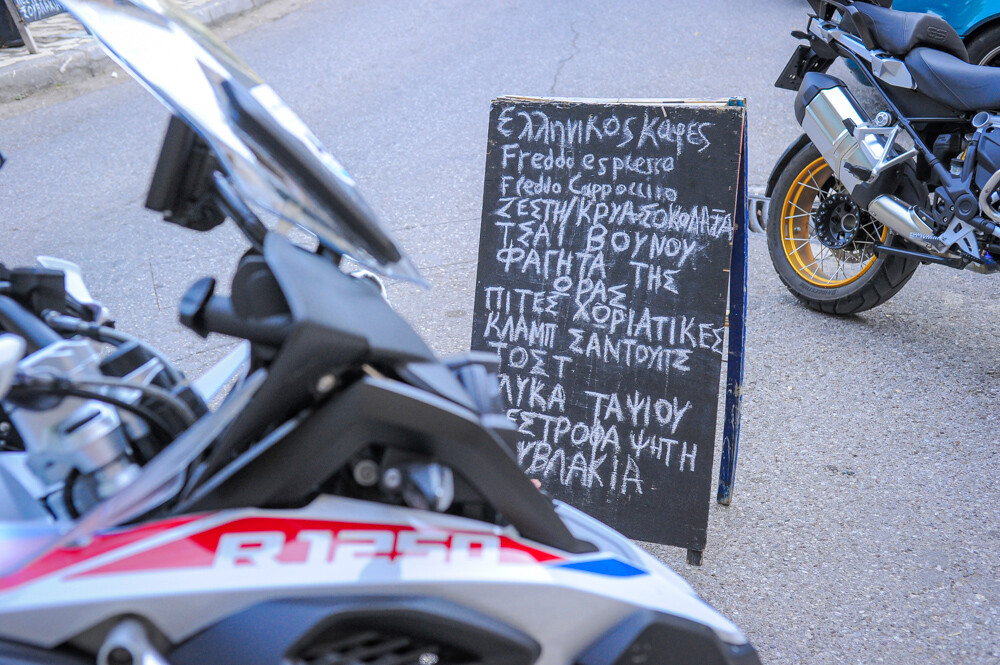 Ελληνικος Καφες
Freddo espresso
Freddo Cappoccino
ΖΕΣΤΗ/ΚΡΥΑ ΣΟΚΟΛΑΤΑ
ΤΣΑΪ ΒΟΥΝΟΥ
ΦΑΓΗΤΑ ΤΗΣ
ΩΡΑΣ
ΠΙΤΕΣ ΧΟΡΙΑΤΙΚΕΣ
ΚΛΑΜΠ ΣΑΝΤΟΥΙΤΣ
ΤΟΣΤ
ΛΥΚΑ ΤΑΨΙΟΥ
ΕΣΤΡΟΦΑ ΨΗΤΗ
ΥΒΛΑΚΙΑ
R1250